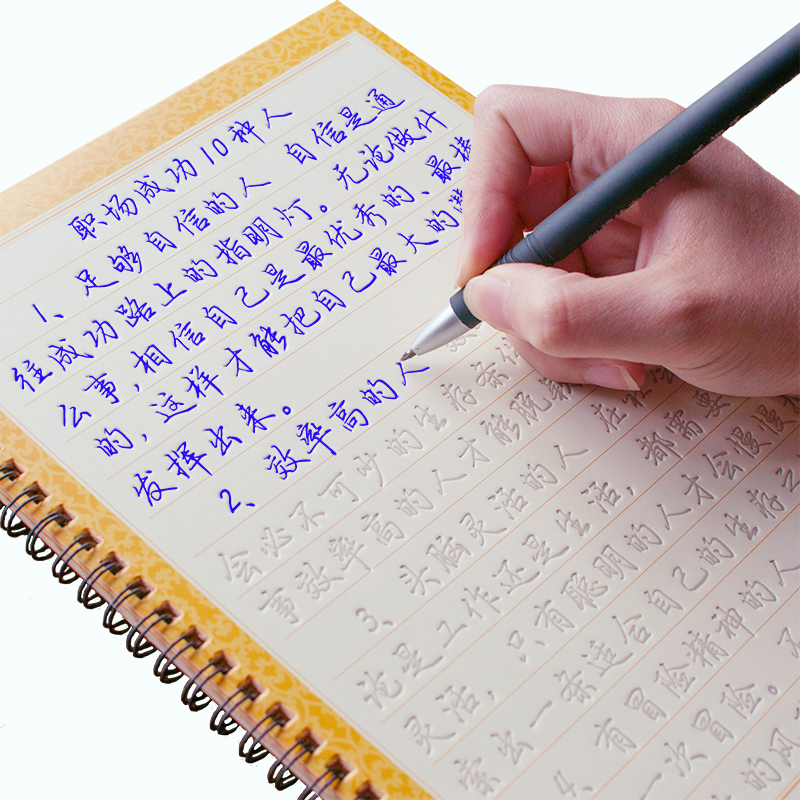 职场成功10种人
1、足够自信的人 自信是通
往成功路上的指明灯。无论做什
么事,相信自己是最优秀的、最棒
的,这样才能把自己最大的潜
发挥出来。
2、效率高的人 效
会必不可少的生存条件
事效率高的人才能脱颖
3、头脑灵活的人 在社会
论是工作还是生活,都需要
灵活,只有聪明的人才会慢慢
索出一条适合自己的生存之
4、有冒险精神的人
一次冒险。不
的风